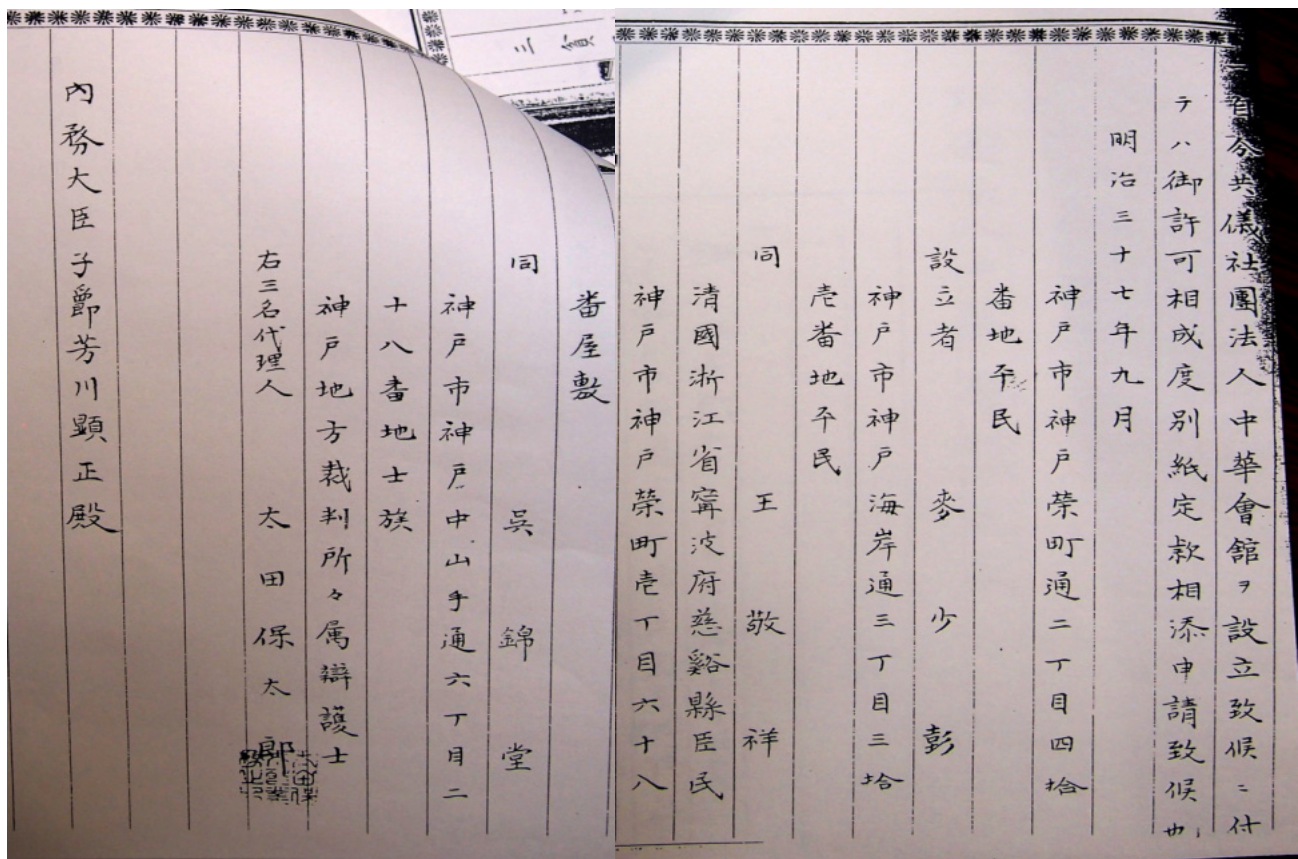 自分共儀社團法人中華會館ヲ設立致候ニ付
テハ御許可相成度別紙定款相添申請致候也
明治三十七年九月
神戸市神戸榮町通二丁目四拾
番地平民
設立者 麥少彭
神戸市神戸海岸通三丁目三拾
壱番地平民
同 王敬祥
清國浙江省寧波府慈谿縣臣民
神戸市神戸榮町壱丁目六十八
番屋敷
同 吳錦堂
神戸市神戸中山手通六丁目二
十八番地士族
神戸地方裁判所々属辯護士
右三名代理人 太田保太郎
內務大臣子爵芳川顕正殿